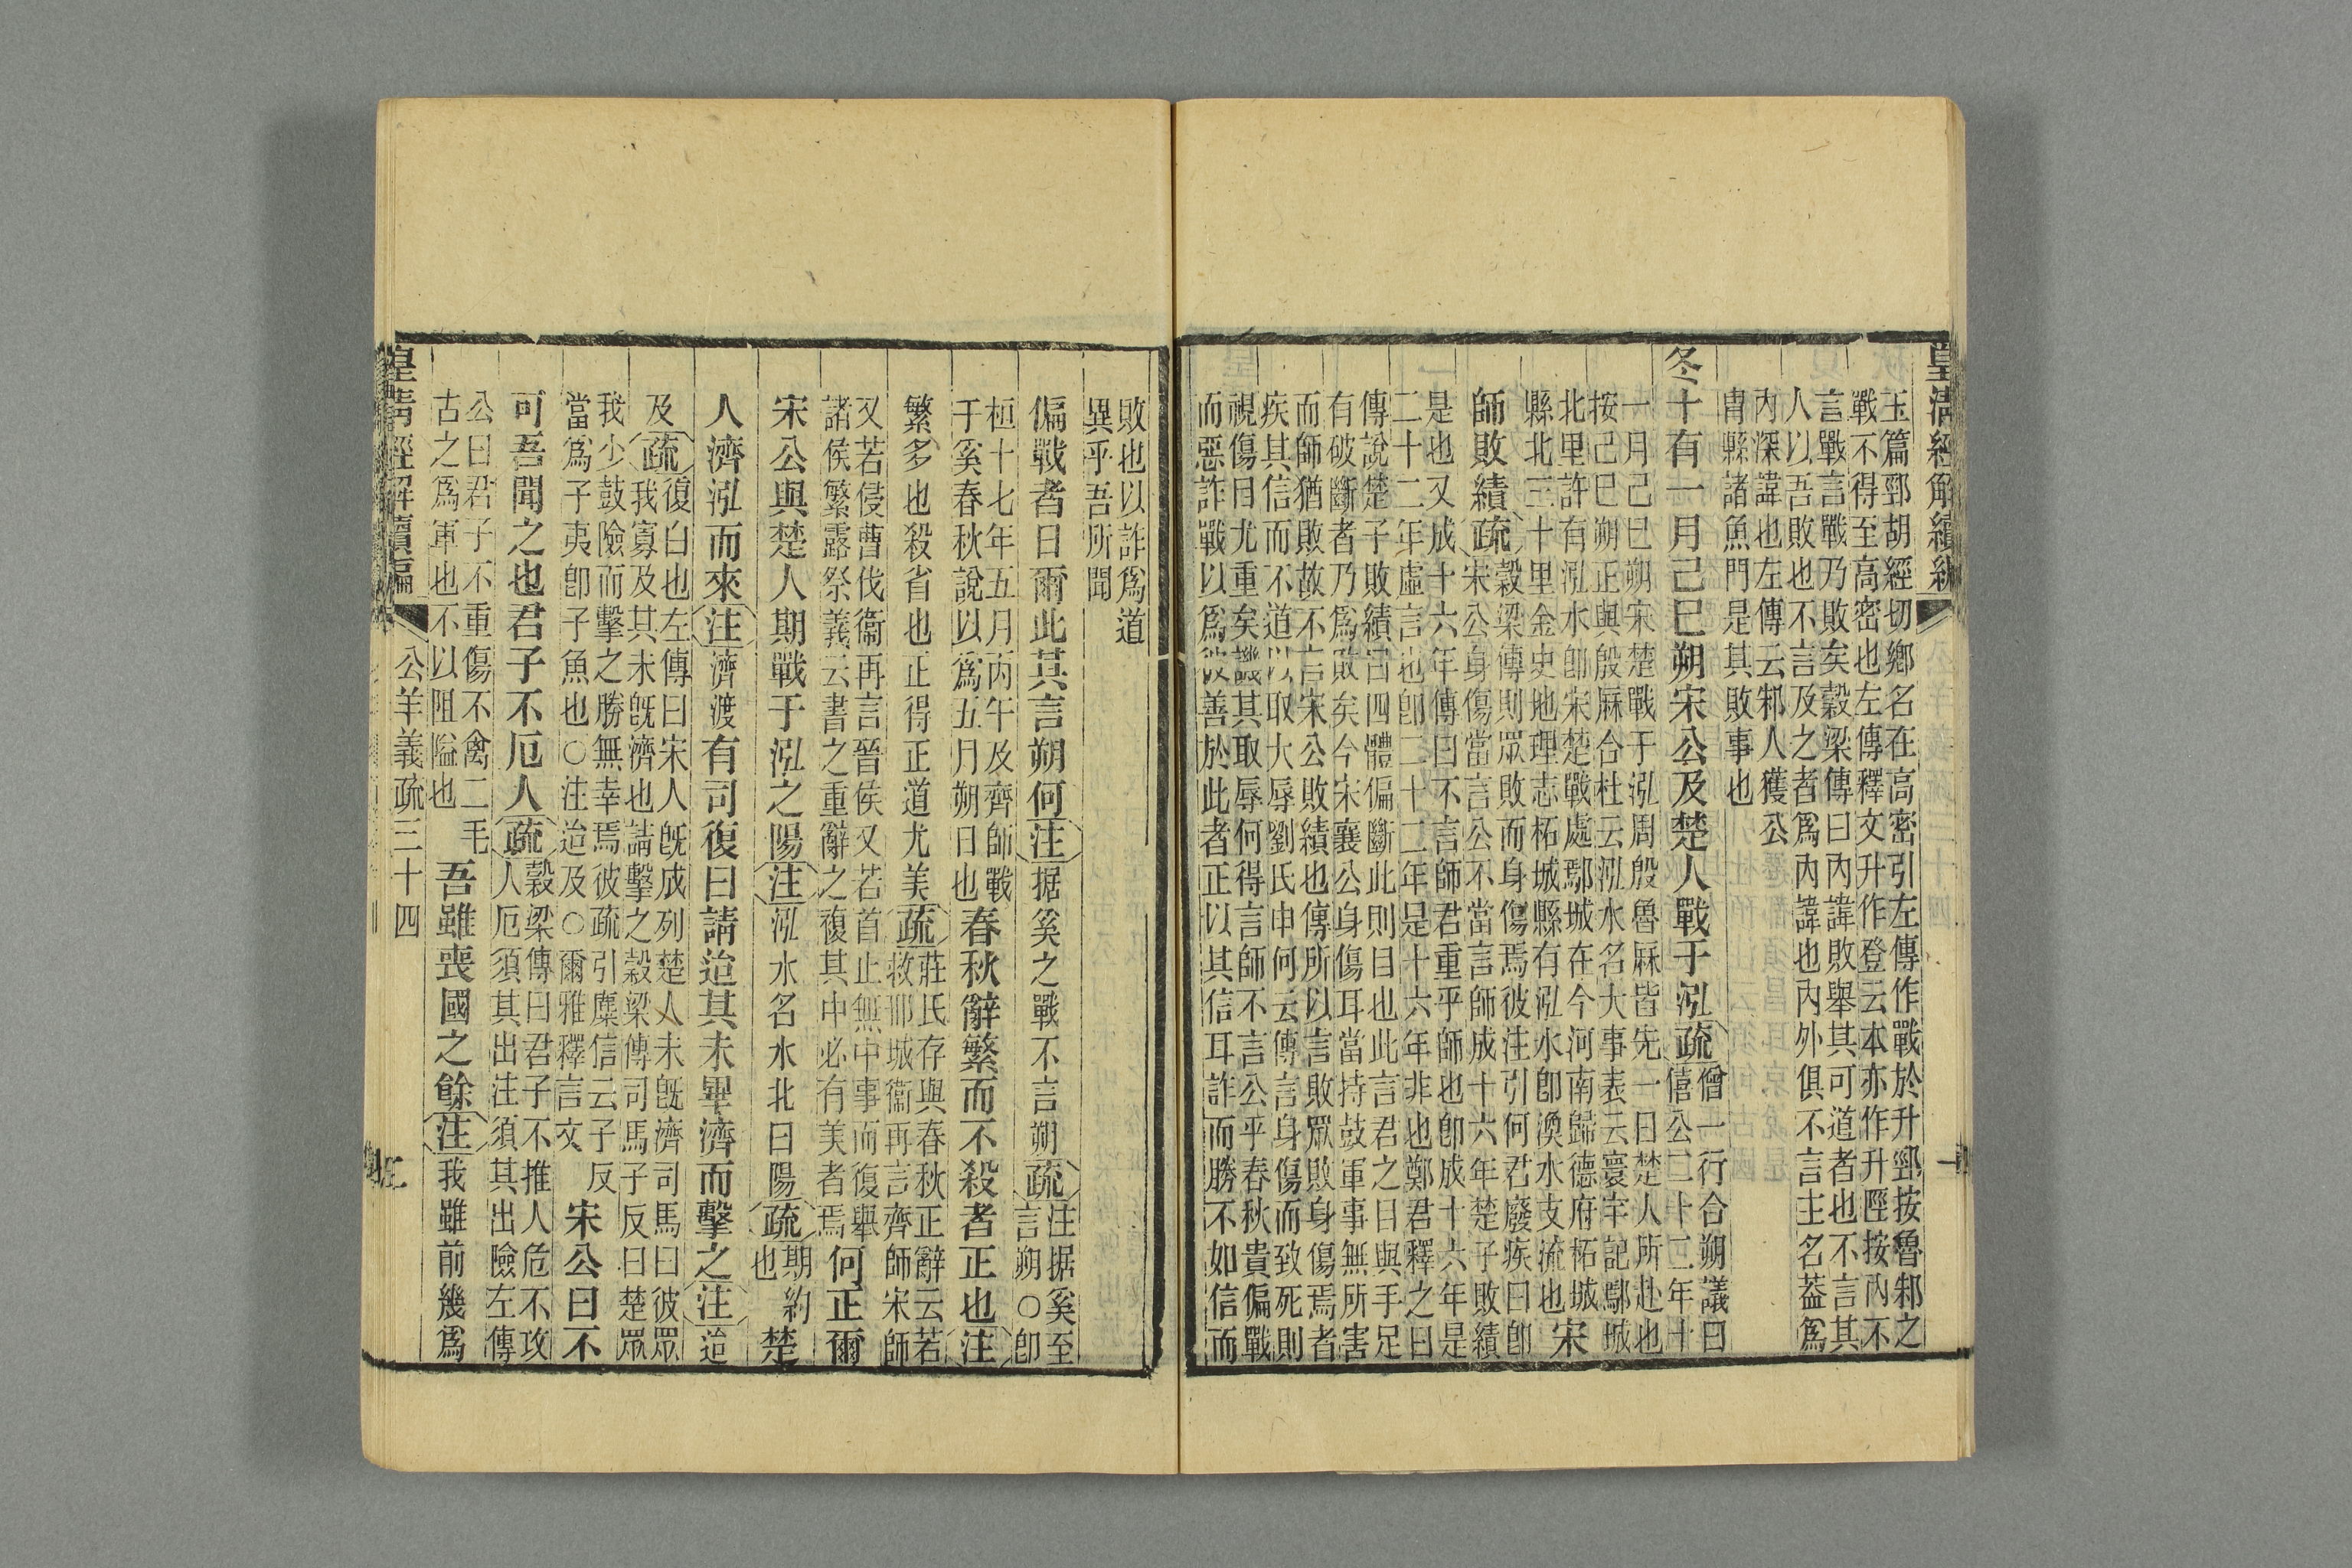 皇清經解續編
玉篇郢胡經切鄉名在高密引左傳作戰於升郢按魯邾之
戰不得至高密也左傳釋文升作登云本亦作升陘按內不
言戰言戰乃敗矣穀梁傳曰內諱敗舉其可道者也不言其
人以吾敗也不言及之者爲內諱也內外俱不言主名葢爲
內深諱也左傳云邾人獲公
冑縣諸魚門是其敗事也
冬十有一月己巳朔宋公及楚人戰于泓疏
僧一行合朔議曰
僖公二十二年十
一月己巳朔宋楚戰于泓周殷魯厤皆先一日楚人所赴也
按己巳朔正與殷厤合杜云泓水名大事表云寰宇記鄢城
北里許有泓水卽宋楚戰處鄢城在今河南歸德府柘城
縣北三十里金史地理志柘城縣有泓水卽渙水支流也
宋
師敗績疏
穀梁傳則眾敗而身傷焉彼注引何君廢疾曰卽
宋公身傷當言公不當言師成十六年楚子敗績
是也又成十六年傳曰不言師君重乎師也卽成十六年是
二十二年虛言也卽二十二年是十六年非也鄭君釋之曰
傳說楚子敗績曰四體偏斷此則目也此言君之目與手足
有破斷者乃爲敗矣今宋襄公身傷耳當持鼓軍事無所害
而師猶敗故不言宋公敗績也傳所以言敗眾敗身傷焉者
疾其信而不道以取大辱劉氏申何云傳言身傷而致死則
視傷目尤重矣譏其取辱何得言師不言公乎春秋貴偏戰
而惡詐戰以爲彼善於此者正以其信耳詐而勝不如信而
敗也以詐爲道
異乎吾所聞
偏戰者日爾此其言朔何注据奚之戰不言朔疏
注据奚至
言朔○卽
桓十七年五月丙午及齊師戰
于奚春秋說以爲五月朔日也
春秋辭繁而不殺者正也注
繁多也殺省也正得正道尤美疏
莊氏存與春秋正辭云若
救邢城衞再言齊師宋師
又若侵曹伐衞再言晉侯又若首止無中事而復舉
諸侯繁露祭義云書之重辭之複其中必有美者焉
何正爾
宋公與楚人期戰于泓之陽注泓水名水北曰陽疏
期約
也
楚
人濟泓而來注濟渡有司復曰請迨其未畢濟而擊之注迨
及疏
復白也左傳曰宋人旣成列楚人未旣濟司馬曰彼眾
我寡及其未旣濟也請擊之穀梁傳司馬子反曰楚眾
我少鼓險而擊之勝無幸焉彼疏引麋信云子反
當爲子夷卽子魚也○注迨及○爾雅釋言文
宋公曰不
可吾聞之也君子不厄人疏
穀梁傳曰君子不推人危不攻
人厄須其出注須其出險左傳
公曰君子不重傷不禽二毛
古之爲軍也不以阻隘也
吾雖喪國之餘注我雖前幾爲
皇淸經解續編
公羊義疏三十四